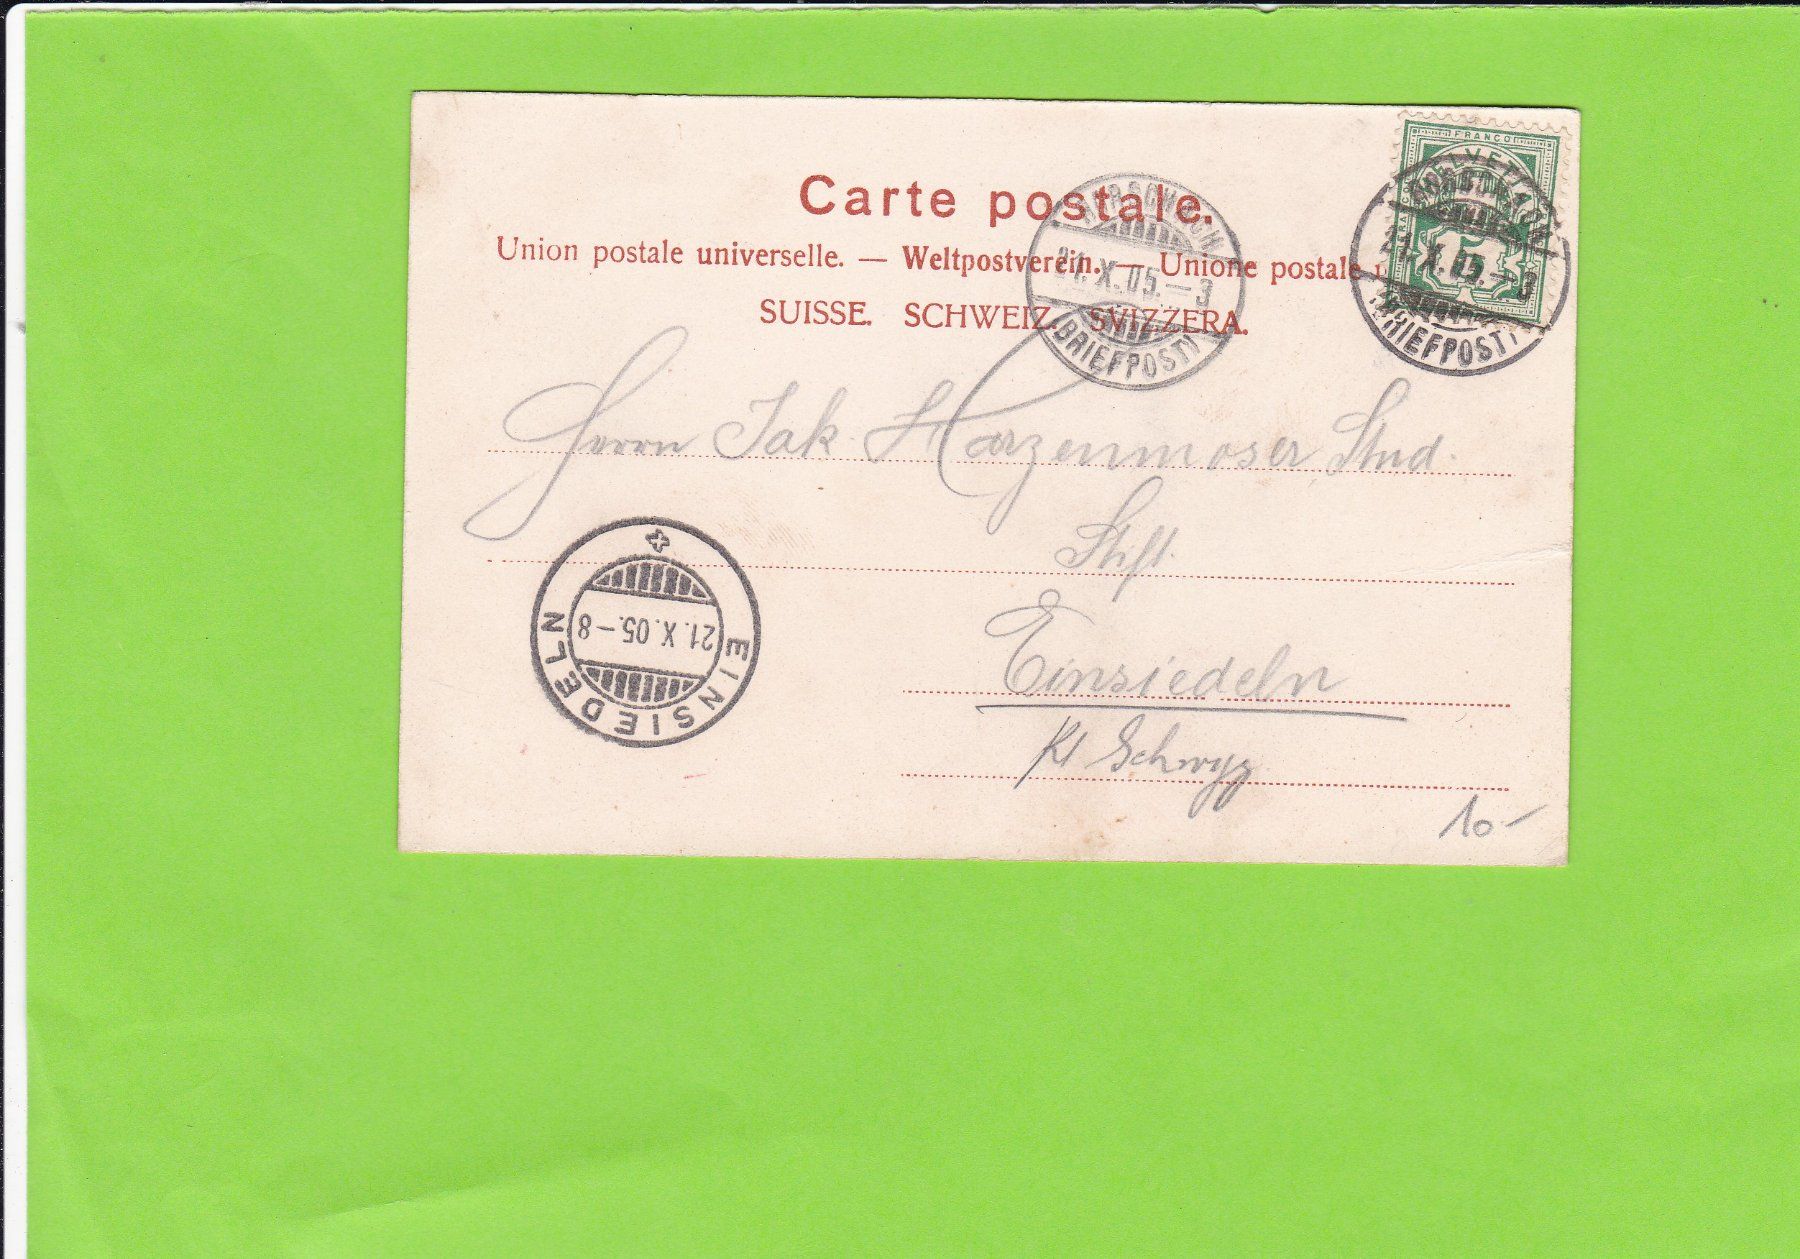 Carte postale.
Union postale universelle. — Weltpostverein. — Unione postale
SUISSE. SCHWEIZ. SVIZZERA.
FRANCO
HELVETIA
5
RORSCHACH
21.X.05.–3
(BRIEFPOST)
21.X.05.–3
(BRIEFPOST)
Herrn Jak. Harzenmoser Stud.
Stift.
Einsiedeln
Kt Schwyz
EINSIEDELN
21.X.05.–8
10.–